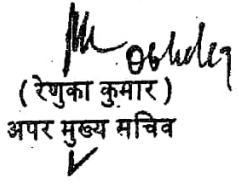 ( रेणुका कुमार )
अपर मुख्य सचिव